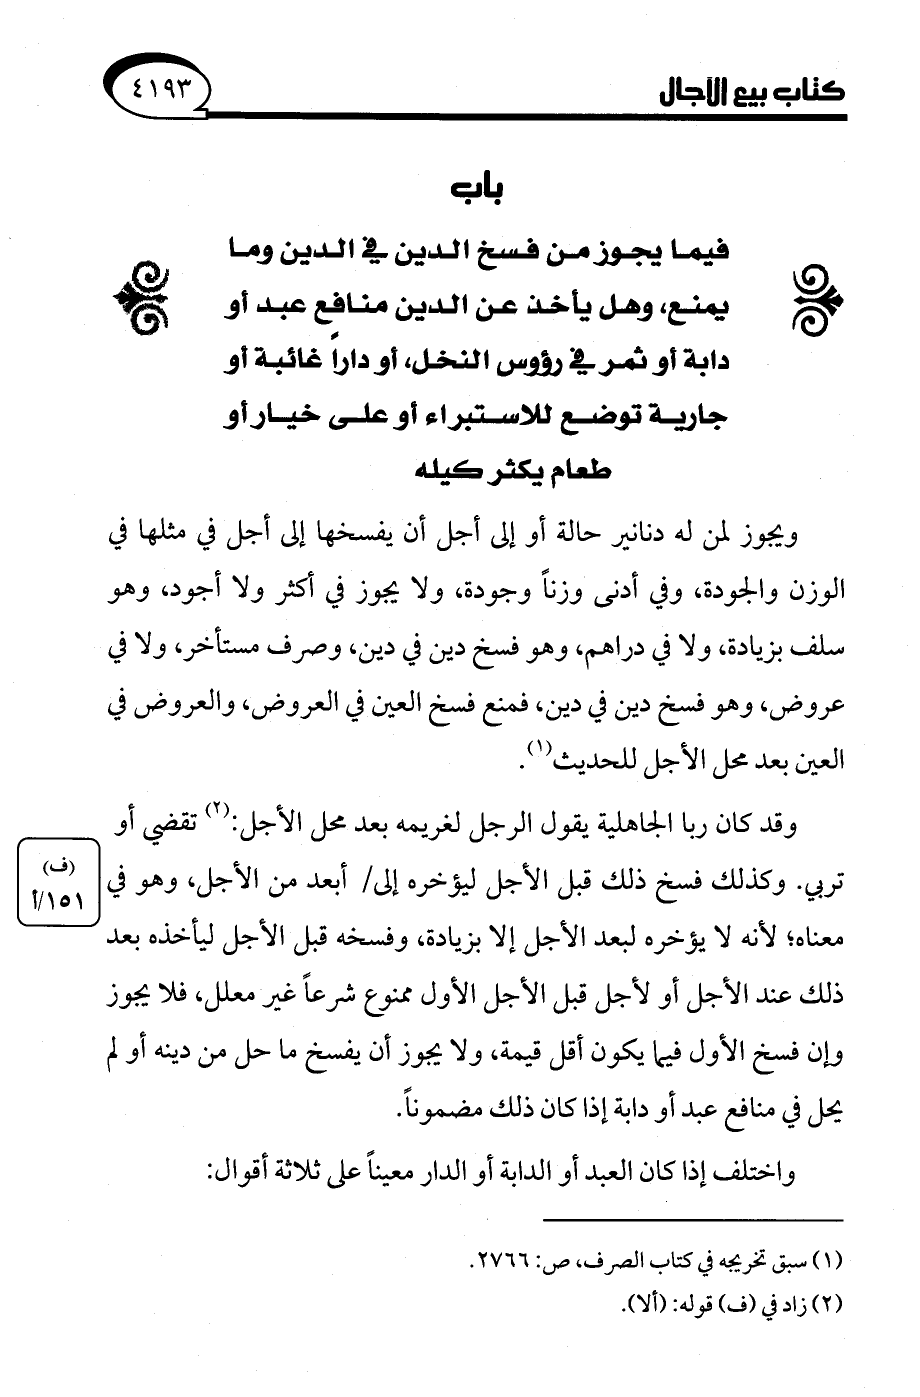 كتاب بيع الآجال
٤١٩٣
باب
فيما يجوز من فسخ الدين في الدين وما
يمنع، وهل يأخذ عن الدين منافع عبد أو
دابة أو ثمر في رؤوس النخل، أو داراً غائبة أو
جارية توضع للاستبراء أو على خيار أو
طعام يكثر كيله
ويجوز لمن له دنانير حالة أو إلى أجل أن يفسخها إلى أجل في مثلها في
الوزن والجودة، وفي أدنى وزناً وجودة، ولا يجوز في أكثر ولا أجود، وهو
سلف بزيادة، ولا في دراهم، وهو فسخ دين في دين، وصرف مستأخر، ولا في
عروض، وهو فسخ دين في دين، فمنع فسخ العين في العروض، والعروض في
العين بعد محل الأجل للحديث(١).
وقد كان ربا الجاهلية يقول الرجل لغريمه بعد محل الأجل:(٢) تقضي أو
تربي. وكذلك فسخ ذلك قبل الأجل ليؤخره إلى/ أبعد من الأجل، وهو في
(ف)
١٥١/أ
معناه؛ لأنه لا يؤخره لبعد الأجل إلا بزيادة، وفسخه قبل الأجل ليأخذه بعد
ذلك عند الأجل أو لأجل قبل الأجل الأول ممنوع شرعاً غير معلل، فلا يجوز
وإن فسخ الأول فيما يكون أقل قيمة، ولا يجوز أن يفسخ ما حل من دينه أو لم
يحل في منافع عبد أو دابة إذا كان ذلك مضموناً.
واختلف إذا كان العبد أو الدابة أو الدار معيناً على ثلاثة أقوال:
(١) سبق تخريجه في كتاب الصرف، ص: ٢٧٦٦.
(٢) زاد في (ف) قوله: (ألا).